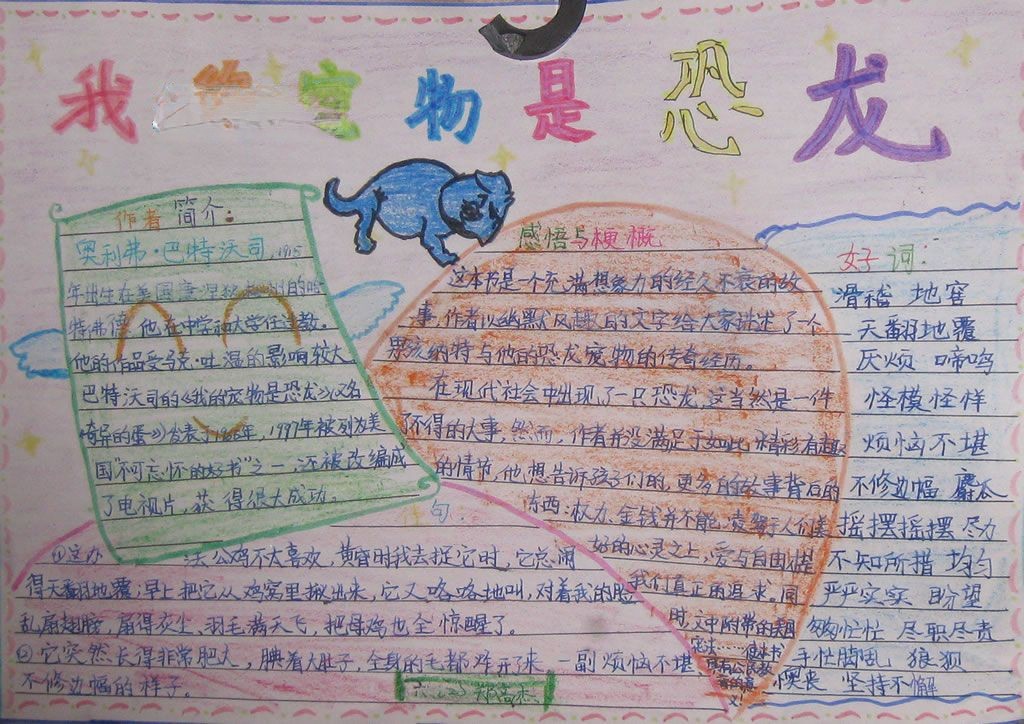 我的宠物是恐龙
作者简介:
奥利弗·巴特沃司,1915
年出生在美国康涅狄格州的哈
特弗德,他在中学和大学任过教。
他的作品受马克·吐温的影响较大。
巴特沃司的《我的宠物是恐龙》(又名
《奇异的蛋》)发表于1956年,1997年被列为美
国"不可忘怀的好书"之一,还被改编成
了电视片,获得很大成功。
感悟与梗概
这本书是一个充满想象力的经久不衰的故
事,作者以幽默风趣的文字给大家讲述了一个
男孩纳特与他的恐龙宠物的传奇经历。
在现代社会中出现了一只恐龙,这当然是一件
了不得的大事,然而,作者并没满足于如此精彩有趣
的情节,他想告诉孩子们的,更多的故事背后的
东西:权力、金钱并不能凌驾于人们美
好的心灵之上,爱与自由才是
我们真正的追求。同
时,文中附带的美国
宪法……使本书
好词:
滑稽 地窖
天翻地覆
厌烦 啼鸣
怪模怪样
烦恼不堪
不修边幅 麝瓜
摇摆摇摆 尽力
不知所措 均匀
严严实实 盼望
匆匆忙忙 尽职尽责
手忙脚乱 狼狈
懊丧 坚持不懈
句
①这办法公鸡不太喜欢,黄昏时我去捉它时,它总闹
得天翻地覆;早上把它从鸡窝里揪出来,它又咯咯地叫,对着我的脸
乱扇翅膀,扇得灰尘、羽毛满天飞,把母鸡也全惊醒了。
②它突然长得非常肥大,腆着大肚子,全身的毛都炸开了来,一副烦恼不堪、
不修边幅的样子。